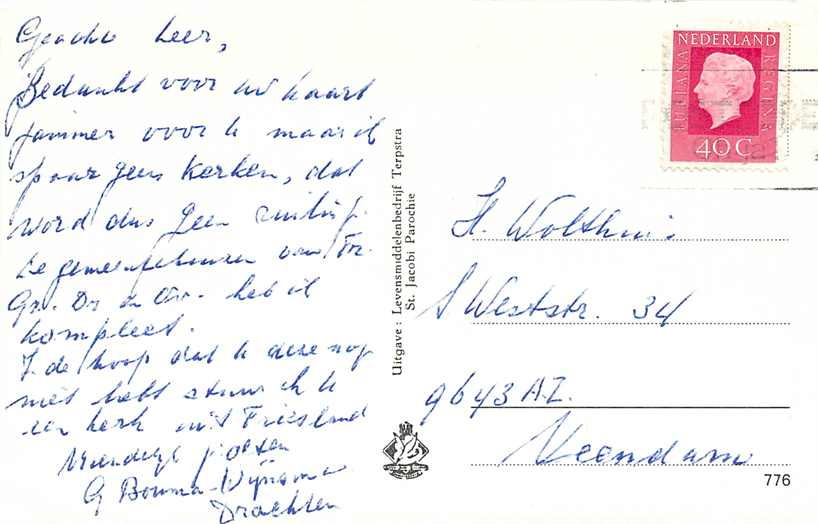 Geachte heer,
Bedankt voor uw kaart
jammer voor u maar ik
spaar geen kerken, dat
word dus geen ruiling.
De gemeentehuizen van Fr.
Gr. Dr en Ov. heb ik
kompleet.
In de hoop dat u deze nog
niet hebt stuur ik u
een kerk uit Friesland
Vriendelijk groeten
G Bouma-Wijnsma
Drachten
Uitgave: Levensmiddelenbedrijf Terpstra
St. Jacobi Parochie
NEDERLAND
JULIANA REGINA
40 C
H. Wolthuis
Weststr. 34
9643 AZ.
Veendam
776